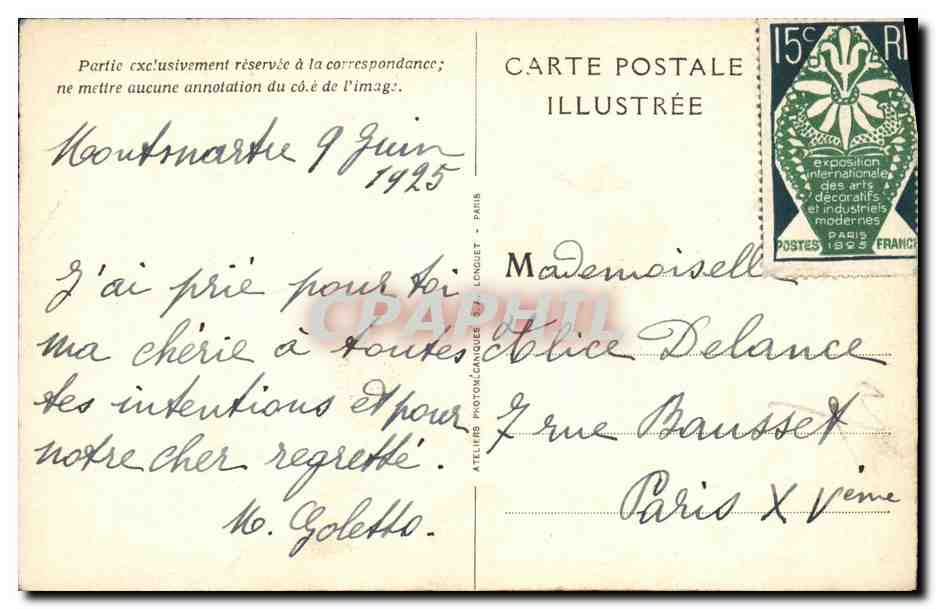 Partie exclusivement réservée à la correspondance;
ne mettre aucune annotation du côté de l'image.
Montmartre 9 Juin
1925
J'ai prié pour toi
ma chérie à toutes
tes intentions et pour
notre cher regretté.
M. Goletto.
ATELIERS PHOTOMÉCANIQUES D. A. LONGUET - PARIS
CARTE POSTALE
ILLUSTRÉE
15c RF
exposition
internationale
des arts
décoratifs
et industriels
modernes
PARIS
POSTES 1925 FRANC
Mademoiselle
Alice Delance
7 rue Bausset
Paris XVème
CPAPHIL